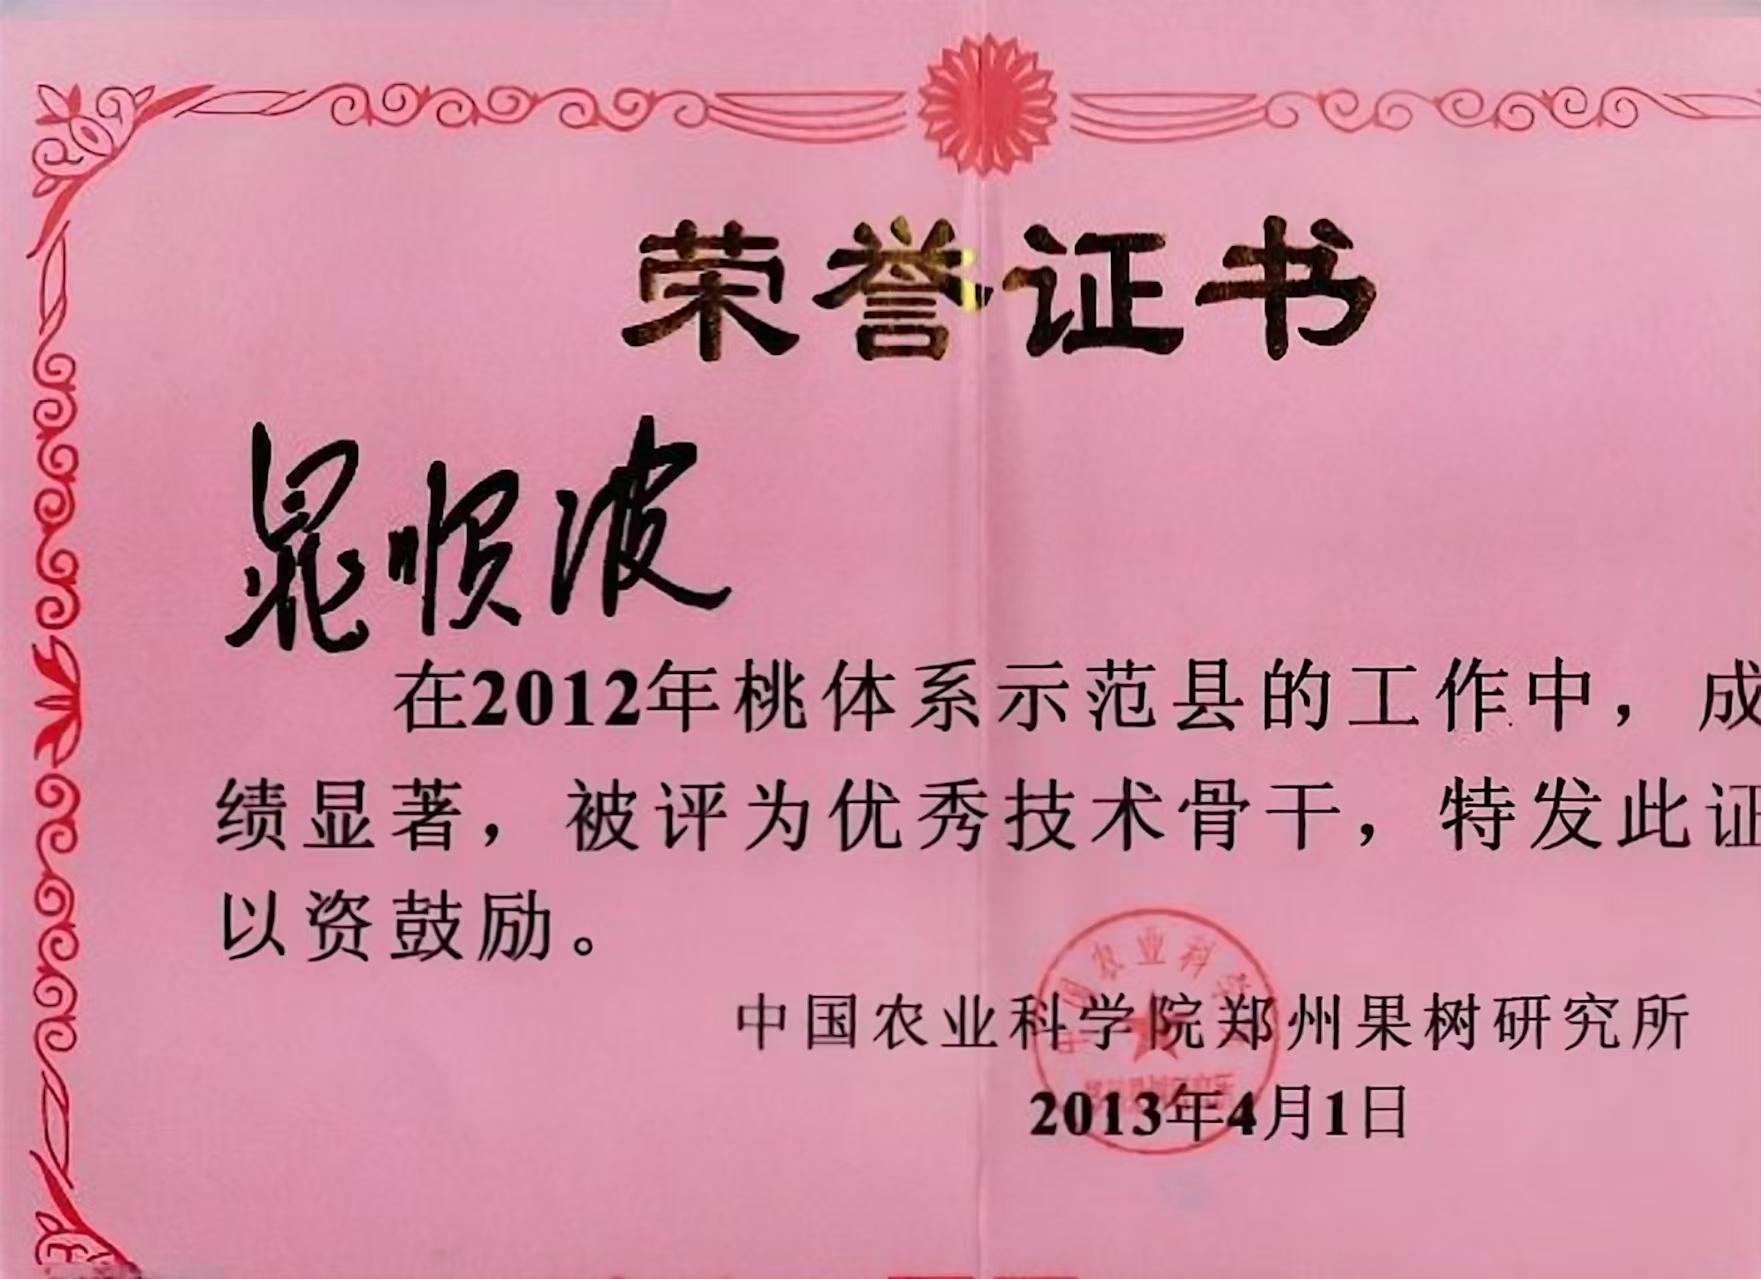 荣誉证书
晁顺波
在2012年桃体系示范县的工作中，成
绩显著，被评为优秀技术骨干，特发此证
以资鼓励。
中国农业科学院郑州果树研究所
2013年4月1日